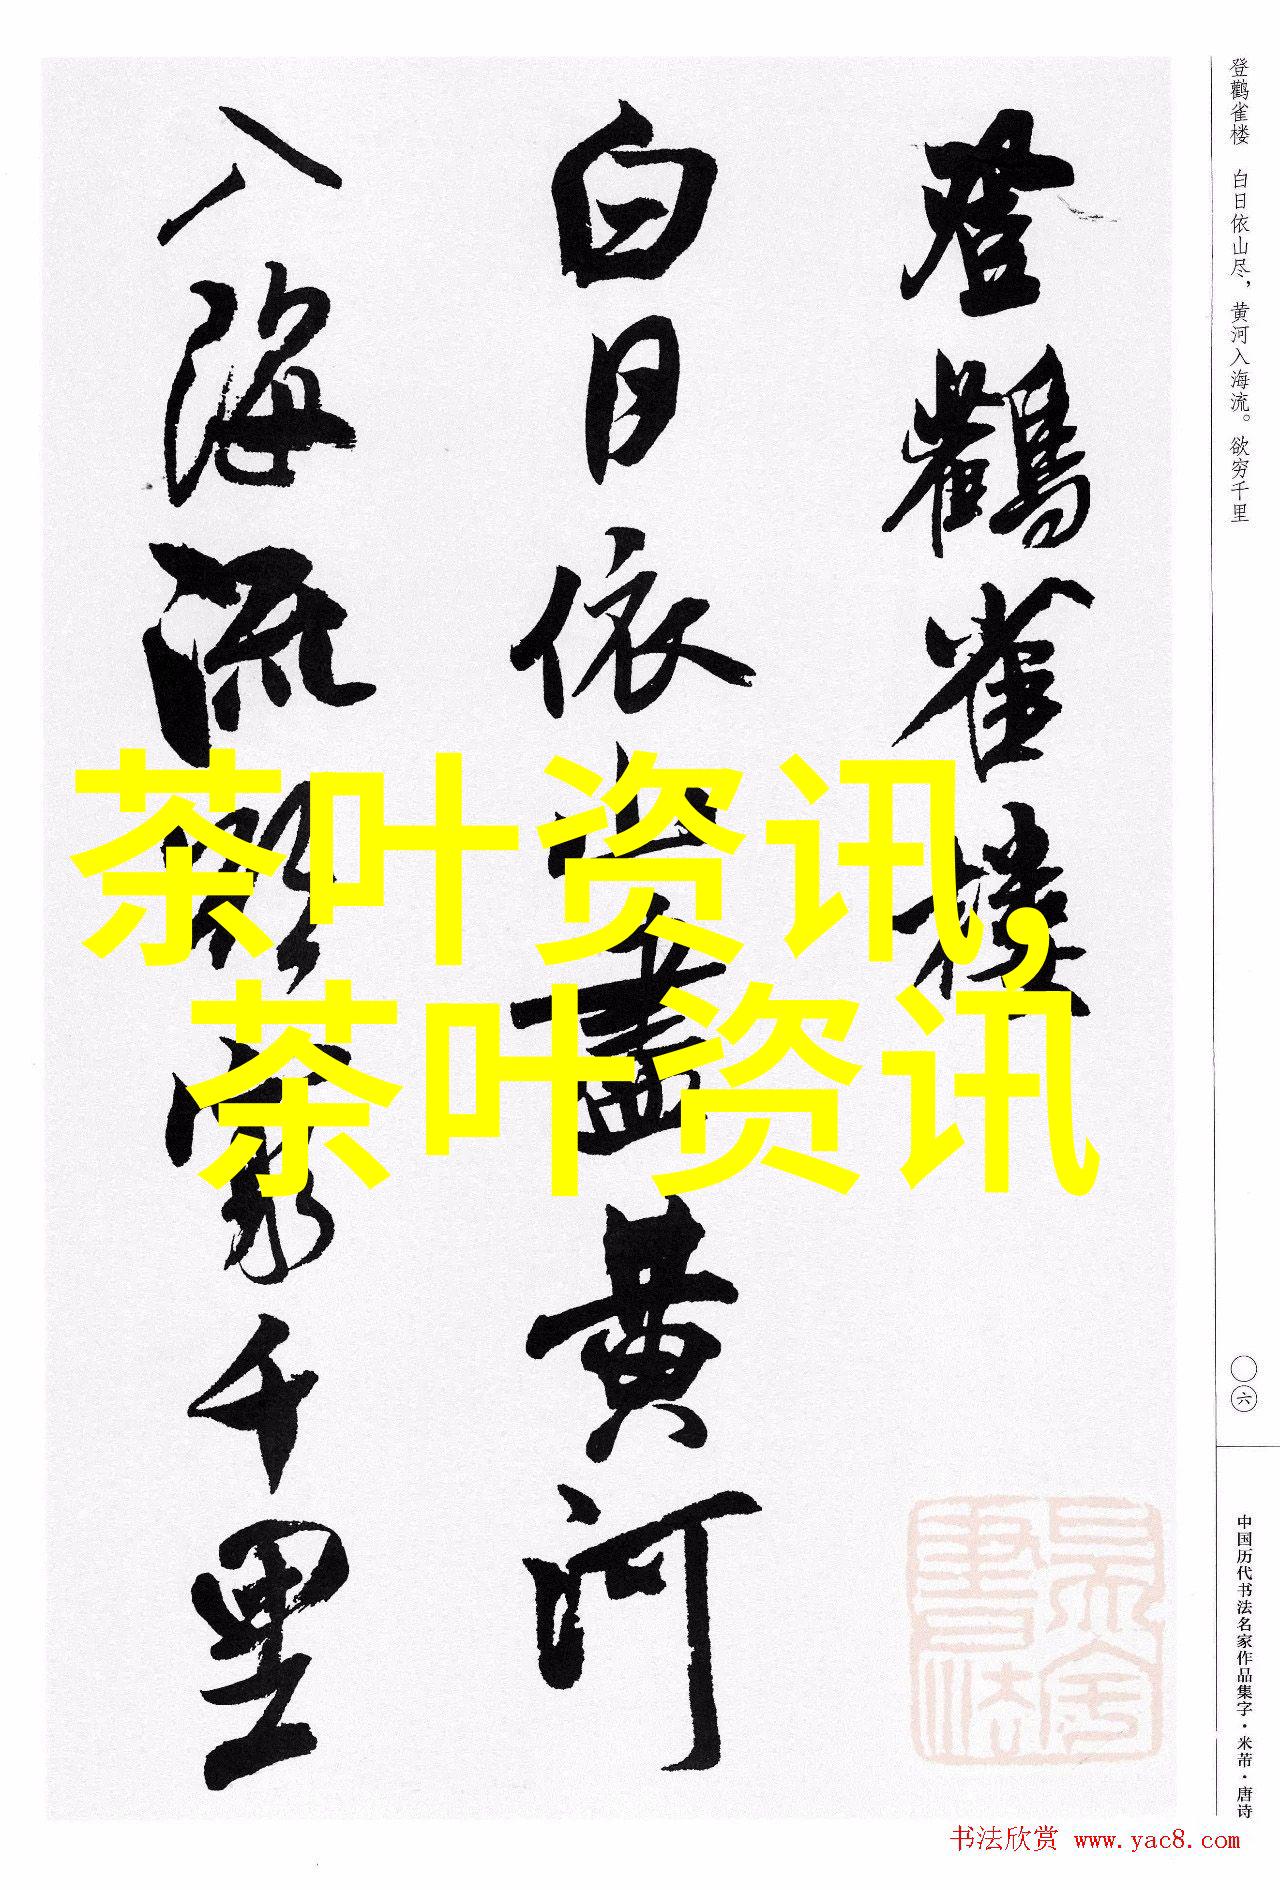 登鹳雀楼 白日依山尽，黄河入海流。欲穷千里
登鸛雀樓
白日依山盡黄河
入海流欲窮千里
茶叶资讯,
茶叶资讯
〇六
中国历代书法名家作品集字·米芾·唐诗
书法欣赏 www.yac8.com